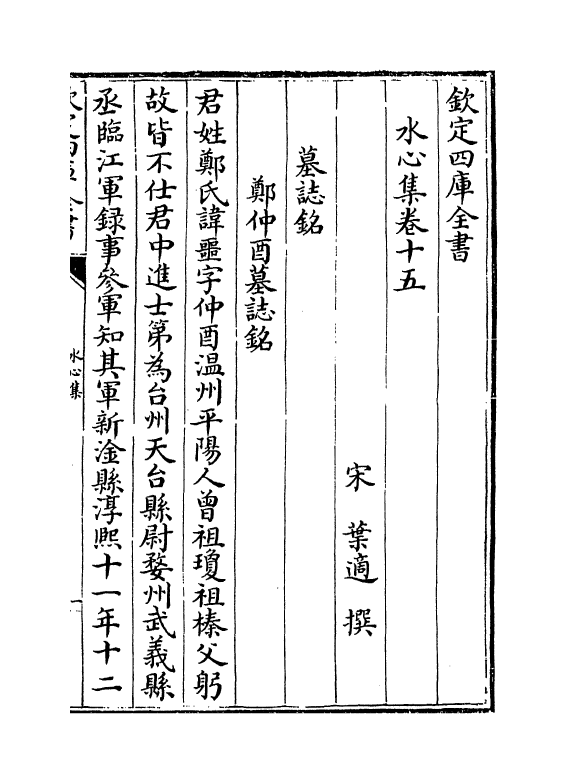 欽定四庫全書
水心集卷十五
宋　葉適　撰
墓誌銘
鄭仲酉墓誌銘
君姓鄭氏諱噩字仲酉温州平陽人曾祖瓊祖榛父躬
故皆不仕君中進士第為台州天台縣尉婺州武義縣
丞臨江軍録事參軍知其軍新淦縣淳熙十一年十二
水心集
一